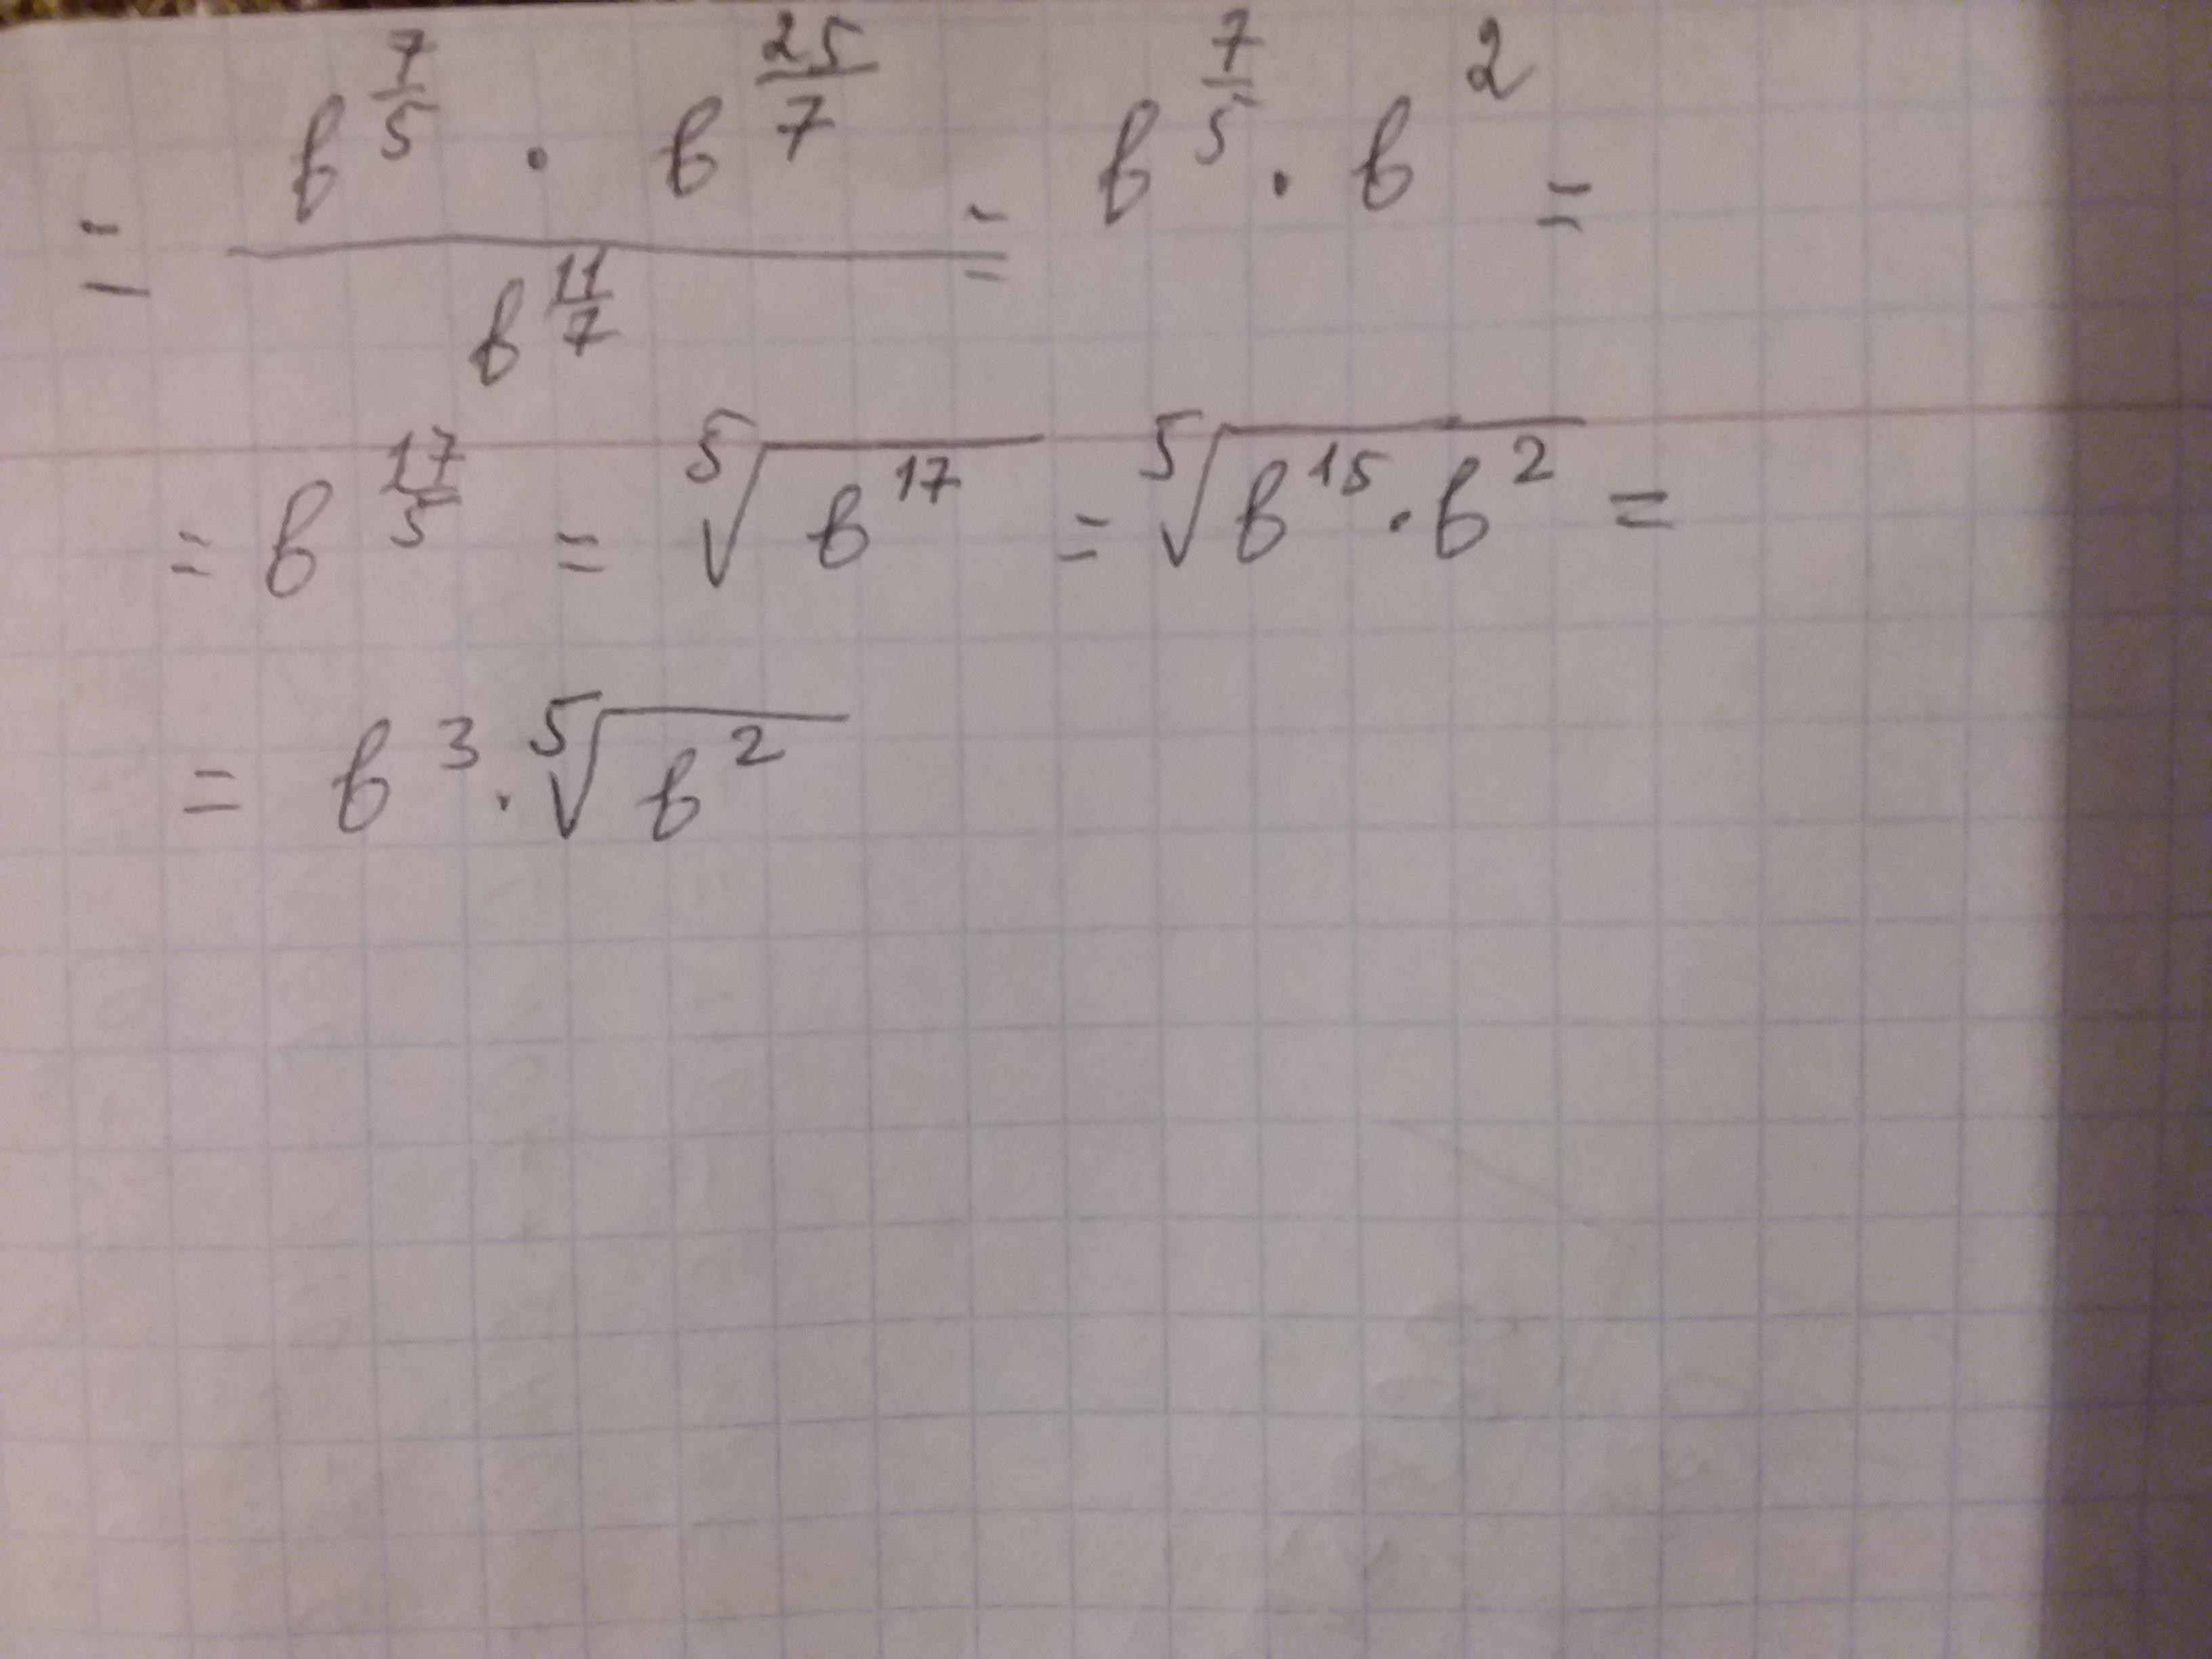 = \frac{b^{\frac{7}{5}} \cdot b^{\frac{25}{7}}}{b^{\frac{11}{7}}} = b^{\frac{7}{5}} \cdot b^{2} =
= b^{\frac{17}{5}} = \sqrt[5]{b^{17}} = \sqrt[5]{b^{15} \cdot b^{2}} =
= b^{3} \cdot \sqrt[5]{b^{2}}